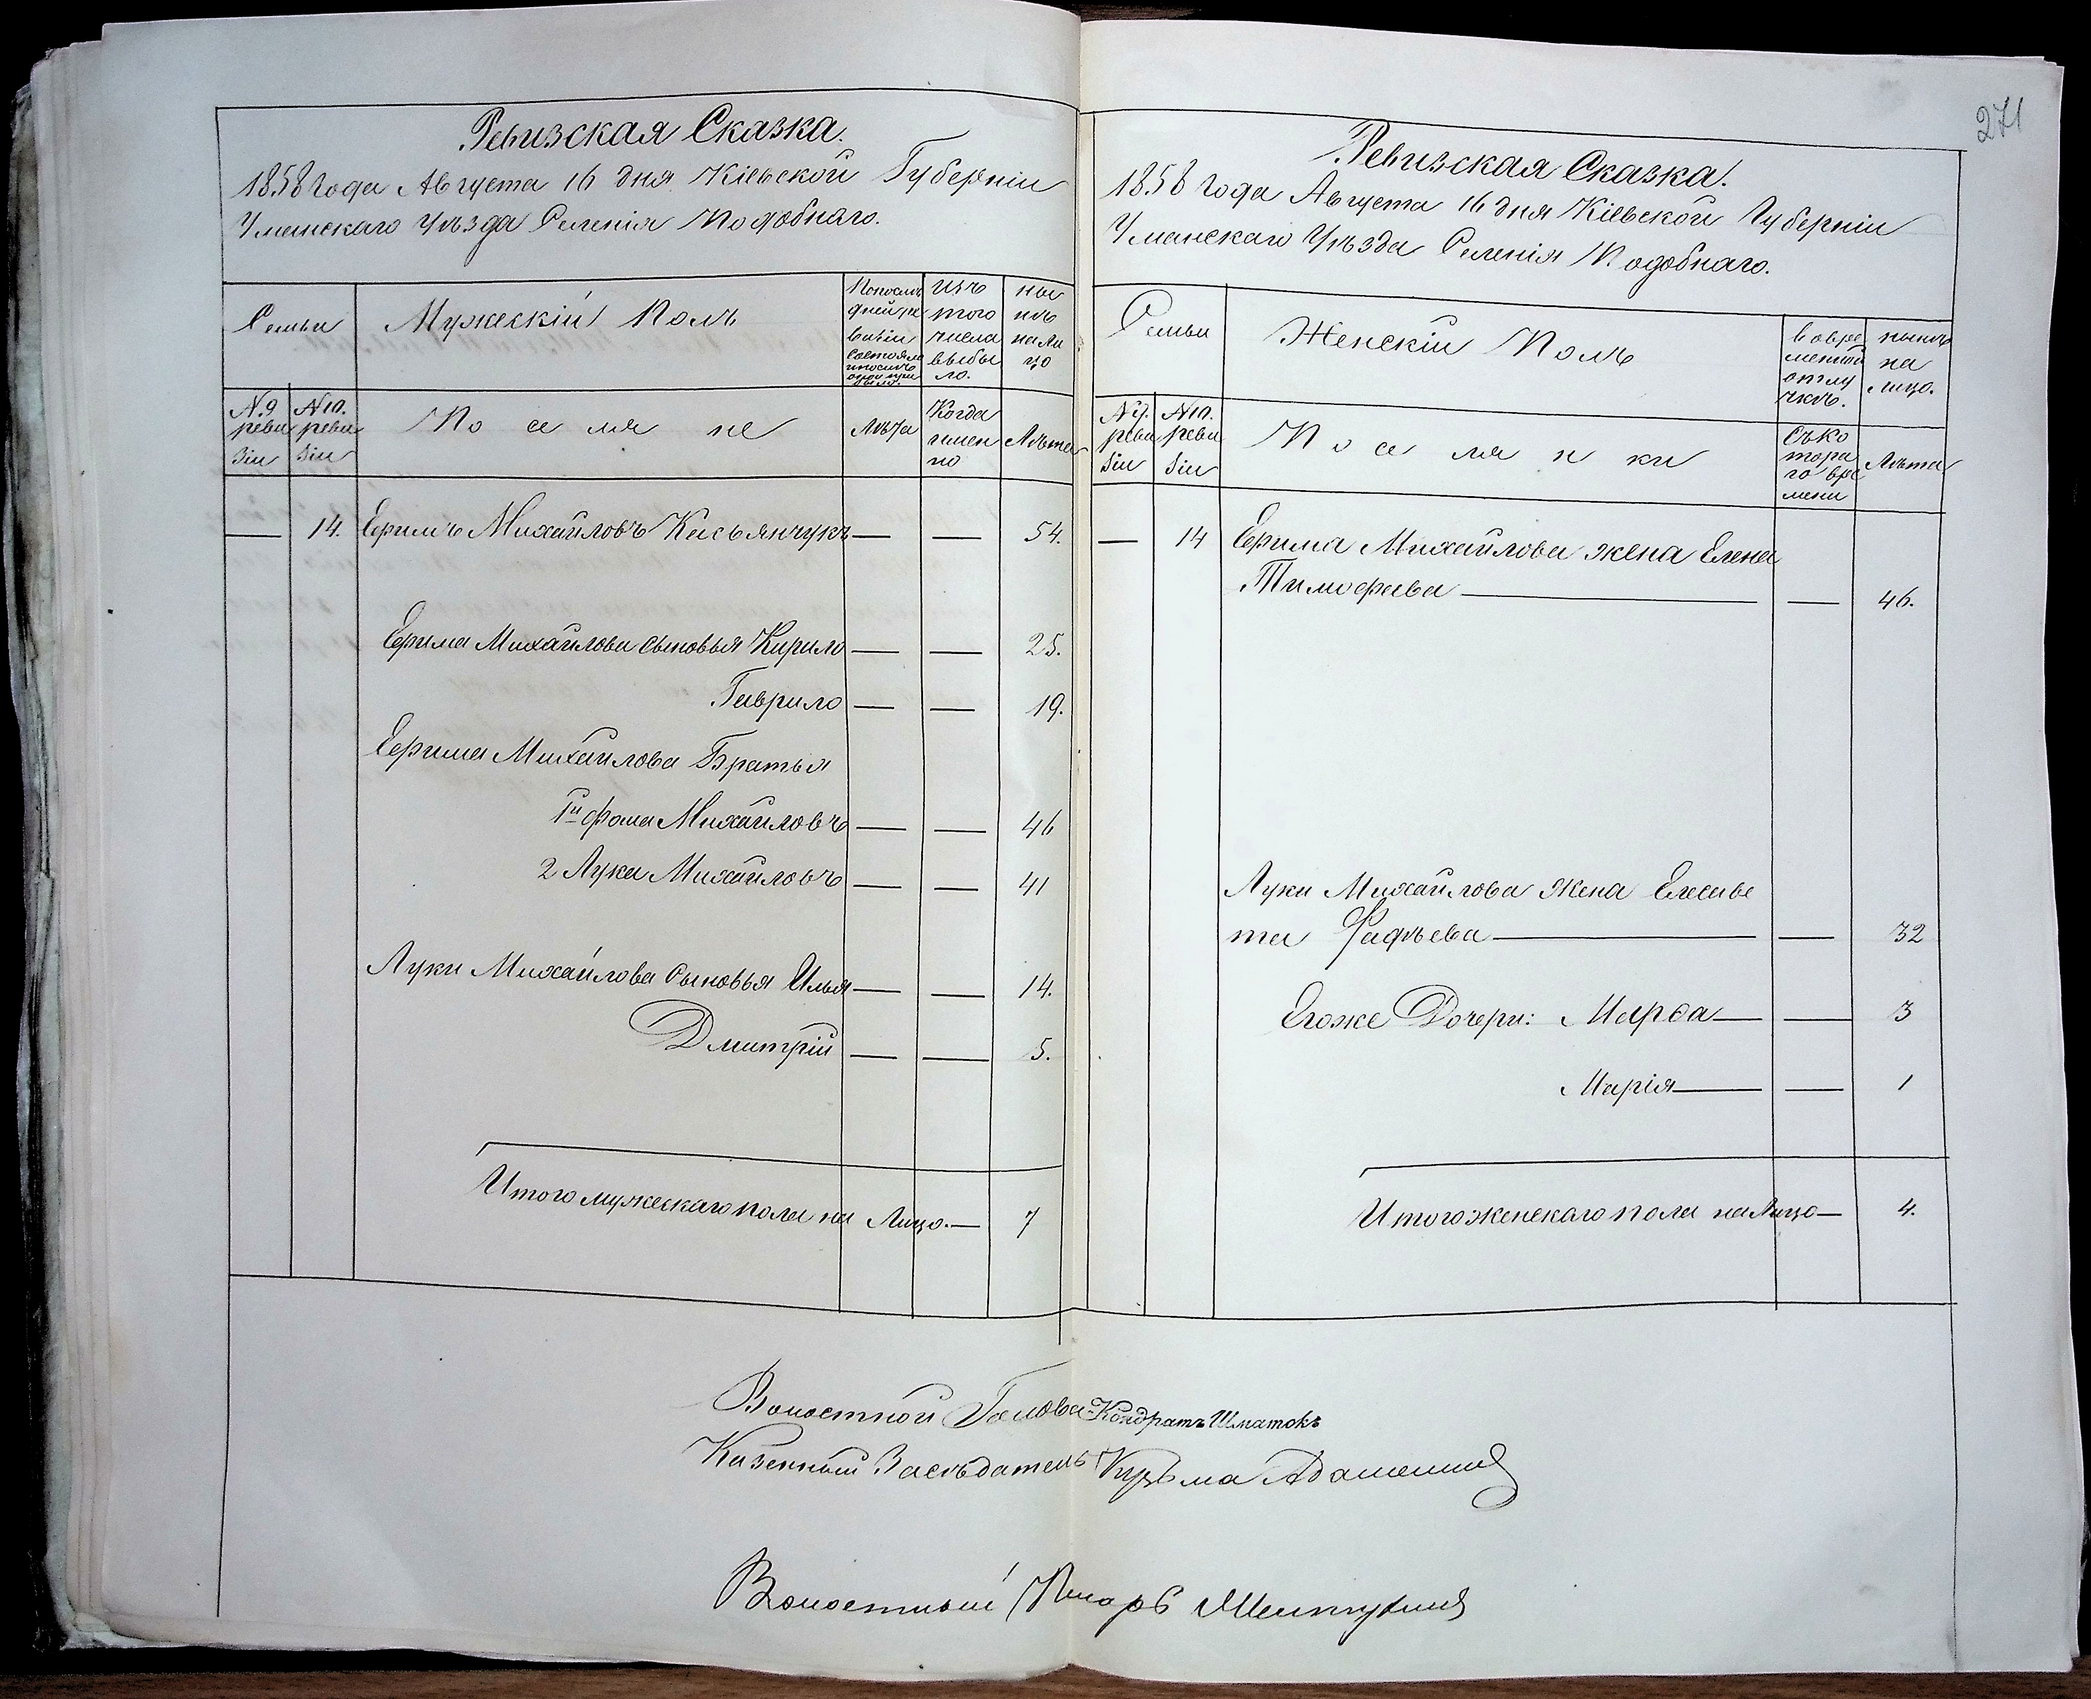 271
Ревизская Сказка.
1858 года Августа 16 дня Кіевской Губерніи
Уманскаго Уѣзда Селенія Подобнаго.
Семьи
Мужескій Полъ
Изъ
того
числа
выбы
ло.
ны
нѣ
на ли
цо
№ 9
реви
зіи
№ 10.
реви
зіи
Поселяне
Лѣта
Когда
имен
но
Лѣта
— 14. Ефимъ Михайловъ Касьянчукъ — — 54.
Ефима Михайлова сыновья Кирило — — 25.
Гаврило — — 19.
Ефима Михайлова Братья
1й Фома Михайловъ — — 46
2 Лука Михайловъ — — 41
Луки Михайлова Сыновья Илья — — 14.
Дмитрій — — 5.
Итого мужескаго пола на Лицо. — 7
Ревизская Сказка.
1858 года Августа 16 дня Кіевской Губерніи
Уманскаго Уѣзда Селенія Подобнаго.
Семьи
Женскій Полъ
во вре
менной
отлу
чкѣ.
нынѣ
на
лицо.
№ 9.
реви
зіи
№ 10.
реви
зіи
Поселянки
Съ ко
тора
го вре
мени
Лѣта
— 14 Ефима Михайлова жена Елена
Тимофеева — — 46.
Луки Михайлова Жена Елисаве
та — — 32
Егоже Дочери: Марѳа — — 3
Марія — — 1
Итого женскаго пола на Лицо — 4.
Волостной Голова Кондратъ Шматокъ
Казенный Засѣдатель Кузьма
Волостный Писарь